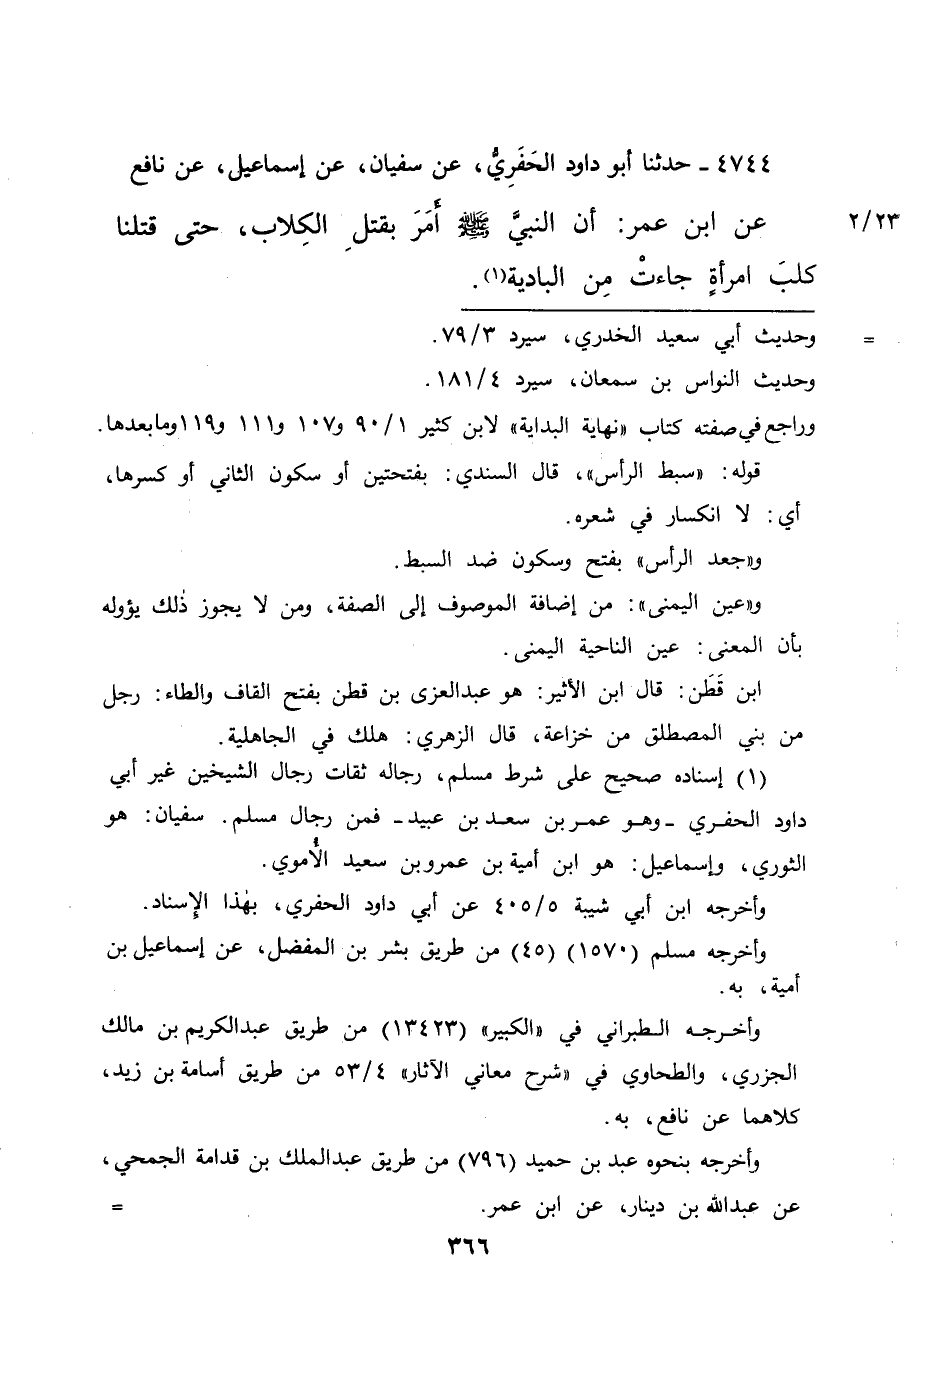 ٤٧٤٤ ـ حدثنا أبو داود الحَفَرِيُّ، عن سفيان، عن إسماعيل، عن نافع
عن ابن عمر: أن النبيَّ ﷺ أَمَرَ بقتلِ الكِلاب، حتى قتلنا ٢/٢٣
كلبَ امرأةٍ جاءتْ مِن البادية(١).
= وحديث أبي سعيد الخدري، سيرد ٧٩/٣.
وحديث النواس بن سمعان، سيرد ١٨١/٤.
وراجع في صفته كتاب «نهاية البداية» لابن كثير ٩٠/١ و١٠٧ و١١١ و١١٩ وما بعدها.
قوله: «سبط الرأس»، قال السندي: بفتحتين أو سكون الثاني أو كسرها،
أي: لا انكسار في شعره.
و«جعد الرأس» بفتح وسكون ضد السبط.
و«عين اليمنى»: من إضافة الموصوف إلى الصفة، ومن لا يجوز ذٰلك يؤوله
بأن المعنى: عين الناحية اليمنى.
ابن قَطَن: قال ابن الأثير: هو عبدالعزى بن قطن بفتح القاف والطاء: رجل
من بني المصطلق من خزاعة، قال الزهري: هلك في الجاهلية.
(١) إسناده صحيح على شرط مسلم، رجاله ثقات رجال الشيخين غير أبي
داود الحفري ـ وهو عمر بن سعد بن عبيد ـ فمن رجال مسلم. سفيان: هو
الثوري، وإسماعيل: هو ابن أمية بن عمرو بن سعيد الأُموي.
وأخرجه ابن أبي شيبة ٤٠٥/٥ عن أبي داود الحفري، بهٰذا الإسناد.
وأخرجه مسلم (١٥٧٠) (٤٥) من طريق بشر بن المفضل، عن إسماعيل بن
أمية، به.
وأخرجه الطبراني في «الكبير» (١٣٤٢٣) من طريق عبدالكريم بن مالك
الجزري، والطحاوي في «شرح معاني الآثار» ٥٣/٤ من طريق أسامة بن زيد،
كلاهما عن نافع، به.
وأخرجه بنحوه عبد بن حميد (٧٩٦) من طريق عبدالملك بن قدامة الجمحي،
عن عبدالله بن دينار، عن ابن عمر. =
٣٦٦